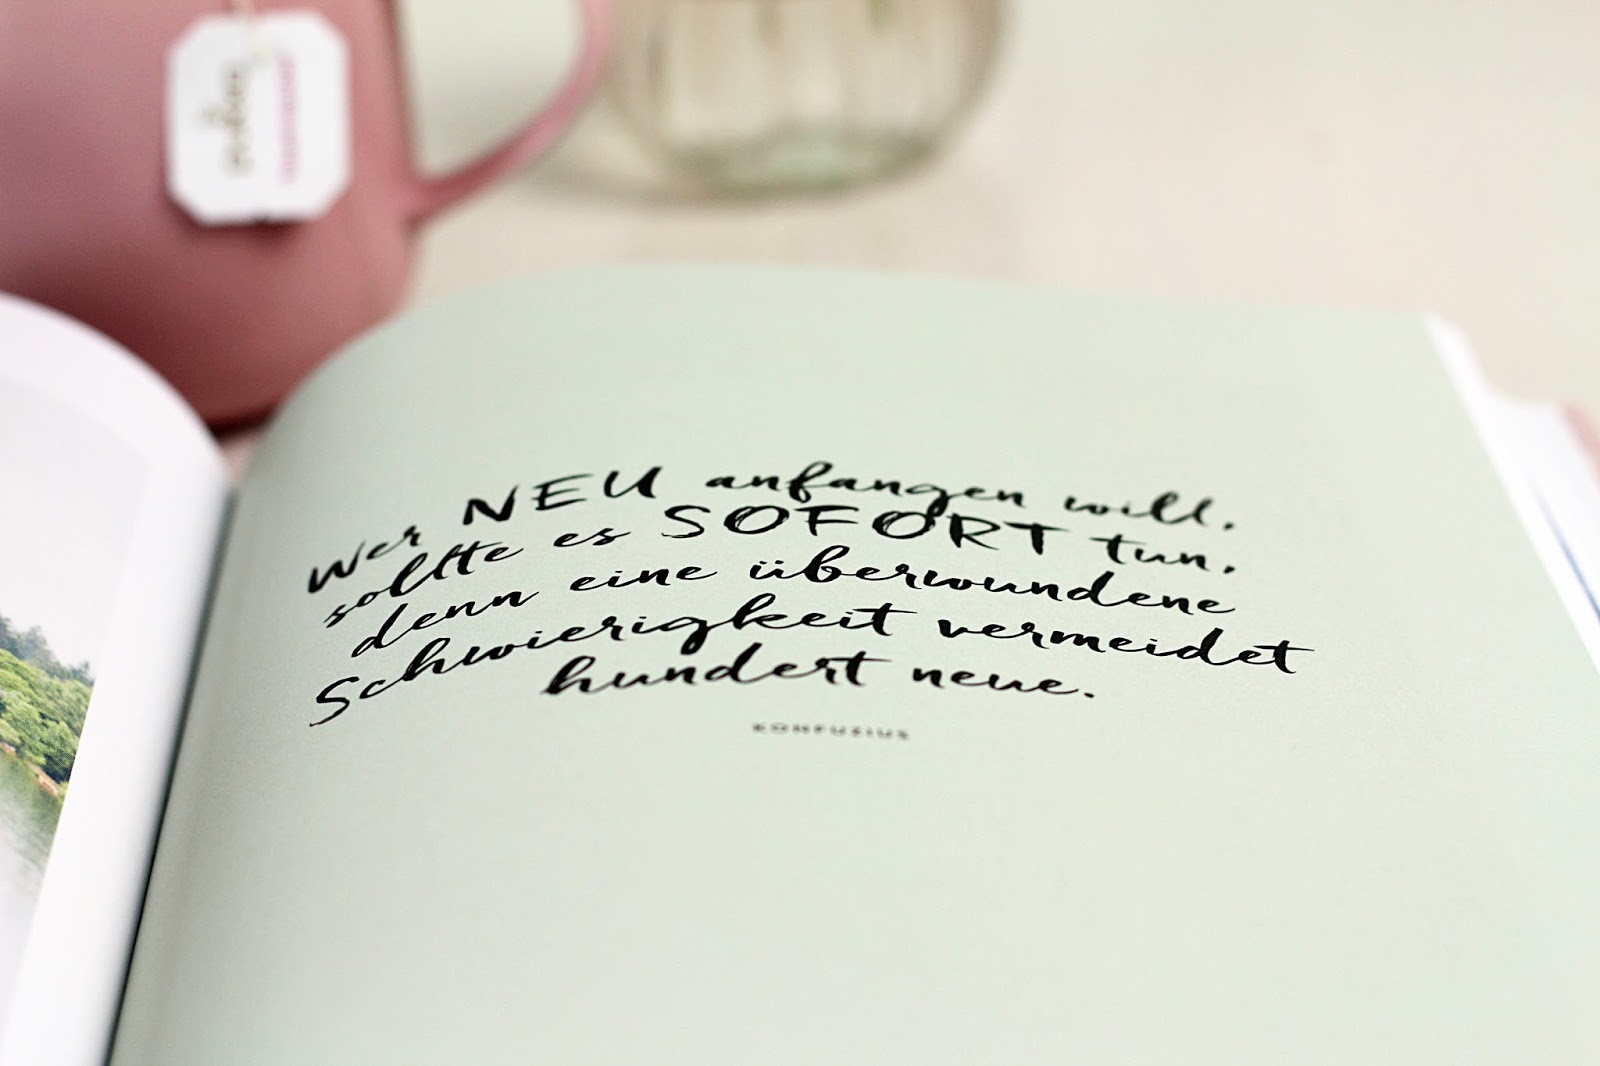 yogi
Wer NEU anfangen will,
sollte es SOFORT tun,
denn eine überwundene
Schwierigkeit vermeidet
hundert neue.
KONFUZIUS